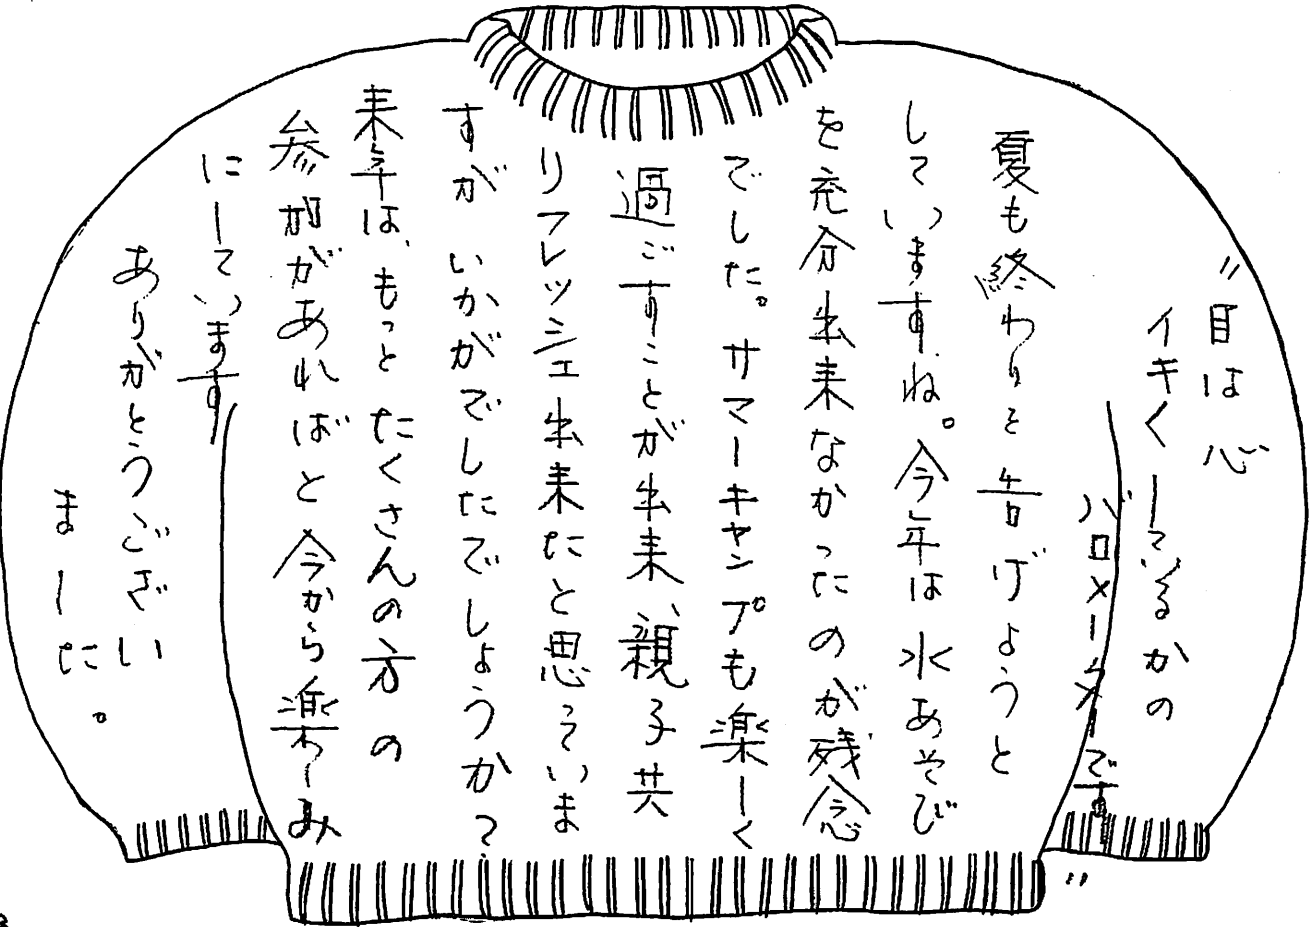 "目は心
イキくしているかの
バロメーターです"
夏も終わりと告げようと
していますね。今年は水あそび
を充分出来なかったのが残念
でした。サマーキャンプも楽しく
過ごすことが出来、親子共
リフレッシュ出来たと思っていま
すが いかがでしたでしょうか?
来年は、もっと たくさんの方の
参加があればと今から楽しみ
にしています
ありがとうござい
ました。